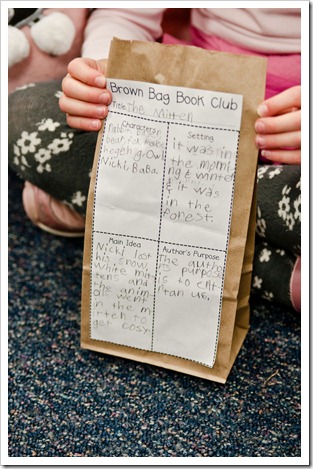 Brown Bag Book Club
Title: The Mitten
Characters
bear, fox,
hegehig, Ow
Nicki, BaBa.
Setting
it was in
the morni
ng & winte
& it was
in the
forest.
Main Idea
Nicki lost
his snow
white mit
ten and
the anim
als went
in the m
itten to
get cosy.
Author's Purpose
The autho
rs purpose
is to ent
rtan us.